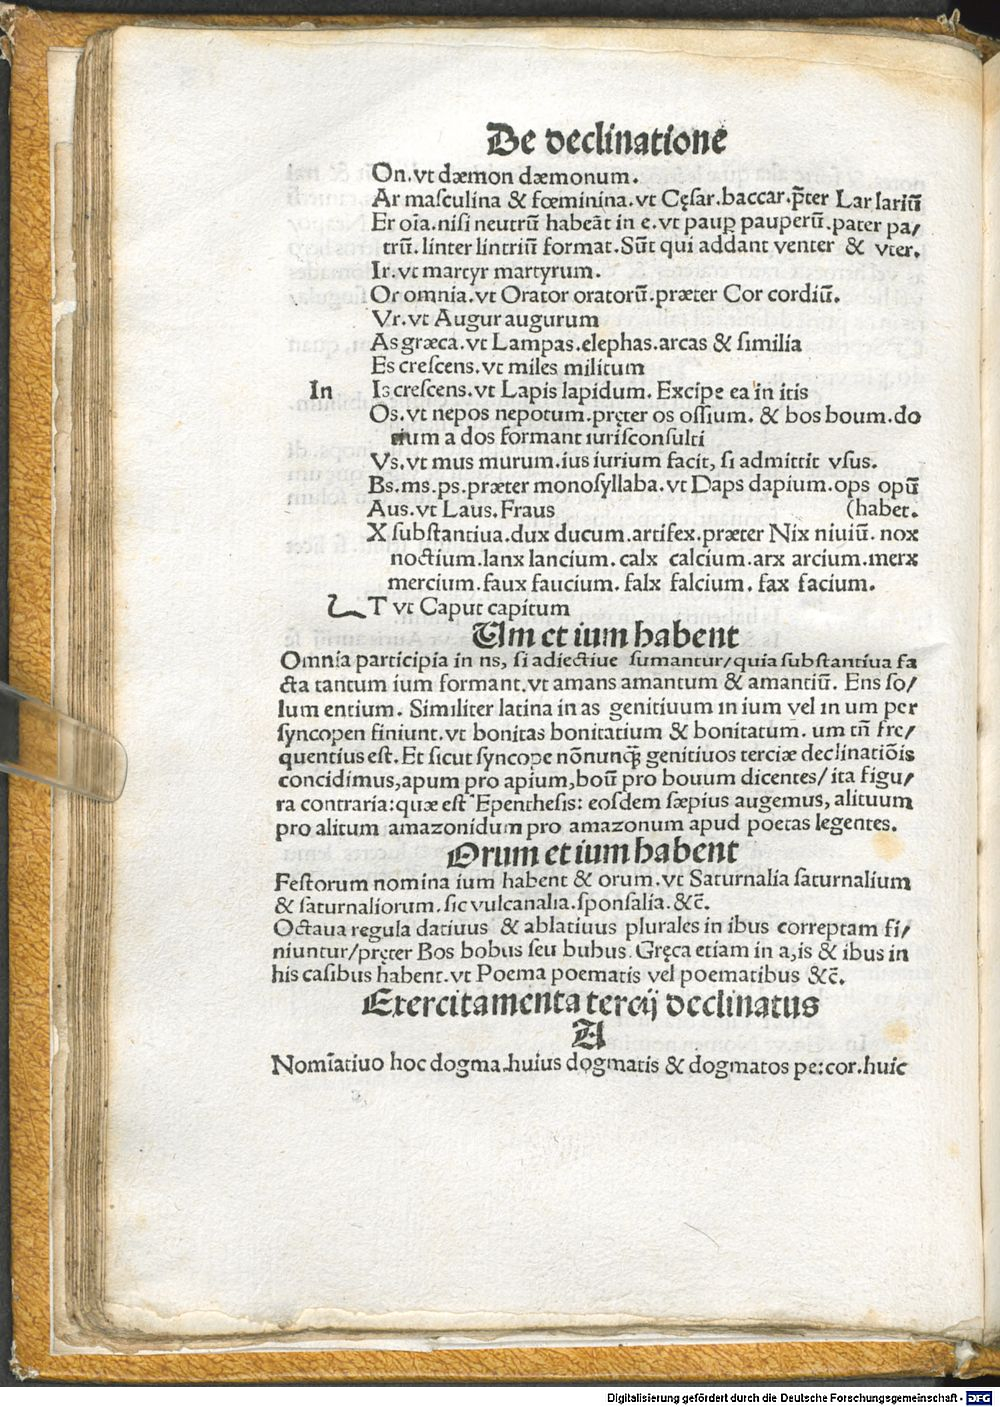 De declinatione
On. vt dæmon dæmonum.
Ar masculina & fœminina. vt Cęsar. baccar. p̄ter Lar lariū
Er oīa. nisi neutrū habeāt in e. vt paup̲ pauperū. pater pa/
trū. linter lintriū format. Sūt qui addant venter & vter.
Ir. vt martyr martyrum.
Or omnia. vt Orator oratorū. præter Cor cordiū.
Vr. vt Augur augurum
As græca. vt Lampas. elephas. arcas & similia
Es crescens. vt miles militum
In Is crescens. vt Lapis lapidum. Excipe ea in itis
Os. vt nepos nepotum. pręter os ossium. & bos boum. do
tium a dos formant iurisconsulti
Vs. vt mus murum. ius iurium facit, si admittit vsus.
Bs. ms. ps. præter monosyllaba. vt Daps dapium. ops opū
Aus. vt Laus. Fraus (habet.
X substantiua. dux ducum. artifex. præter Nix niuiū. nox
noctium. lanx lancium. calx calcium. arx arcium. merx
mercium. faux faucium. falx falcium. fax facium.
T vt Caput capitum
Um et ium habent
Omnia participia in ns, si adiectiue sumantur/ quia substantiua fa
cta tantum ium formant. vt amans amantum & amantiū. Ens so/
lum entium. Similiter latina in as genitiuum in ium vel in um per
syncopen finiunt. vt bonitas bonitatium & bonitatum. um tn̄ fre/
quentius est. Et sicut syncope nōnunq̄ꝫ genitiuos terciæ declinatiōis
concidimus, apum pro apium, boū pro bouum dicentes/ ita figu/
ra contraria: quæ est Epenthesis: eosdem sæpius augemus, alituum
pro alitum amazonidum pro amazonum apud poetas legentes.
Orum et ium habent
Festorum nomina ium habent & orum. vt Saturnalia saturnalium
& saturnaliorum. sic vulcanalia. sponsalia. &c̄.
Octaua regula datiuus & ablatiuus plurales in ibus correptam fi/
niuntur/ pręter Bos bobus seu bubus. Gręca etiam in a, is & ibus in
his casibus habent. vt Poema poematis vel poematibus &c̄.
Exercitamenta tercij declinatus
A
Nomīatiuo hoc dogma. huius dogmatis & dogmatos pe: cor. huic
Digitalisierung gefördert durch die Deutsche Forschungsgemeinschaft - DFG